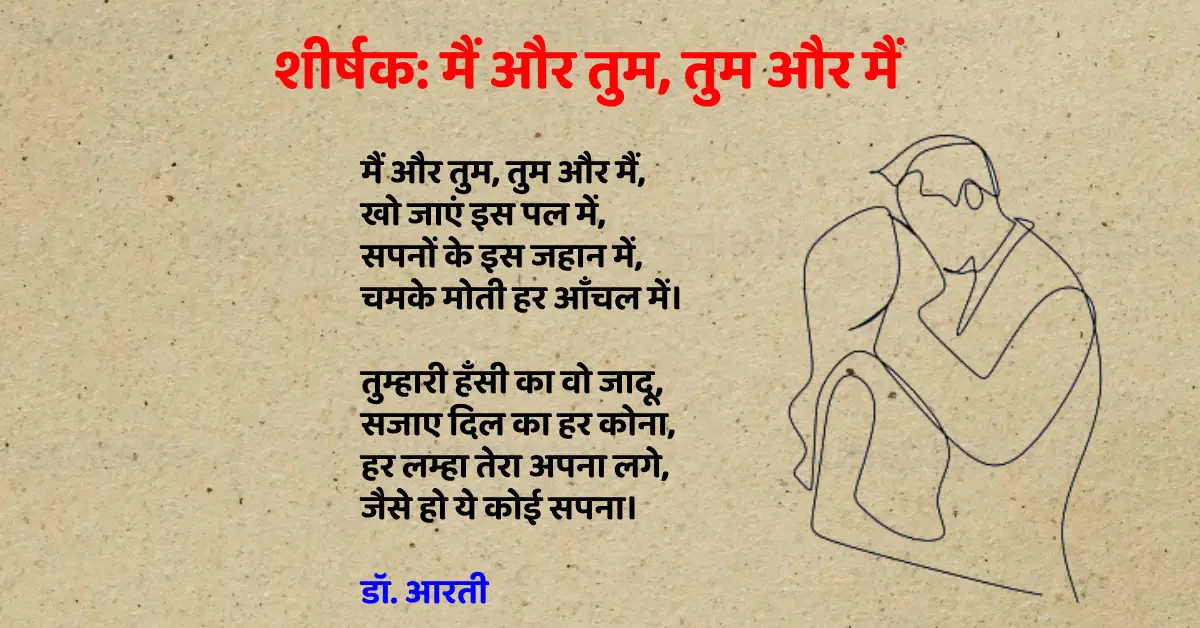 शीर्षक: मैं और तुम, तुम और मैं
मैं और तुम, तुम और मैं,
खो जाएं इस पल में,
सपनों के इस जहान में,
चमके मोती हर आँचल में।
तुम्हारी हँसी का वो जादू,
सजाए दिल का हर कोना,
हर लम्हा तेरा अपना लगे,
जैसे हो ये कोई सपना।
डॉ. आरती